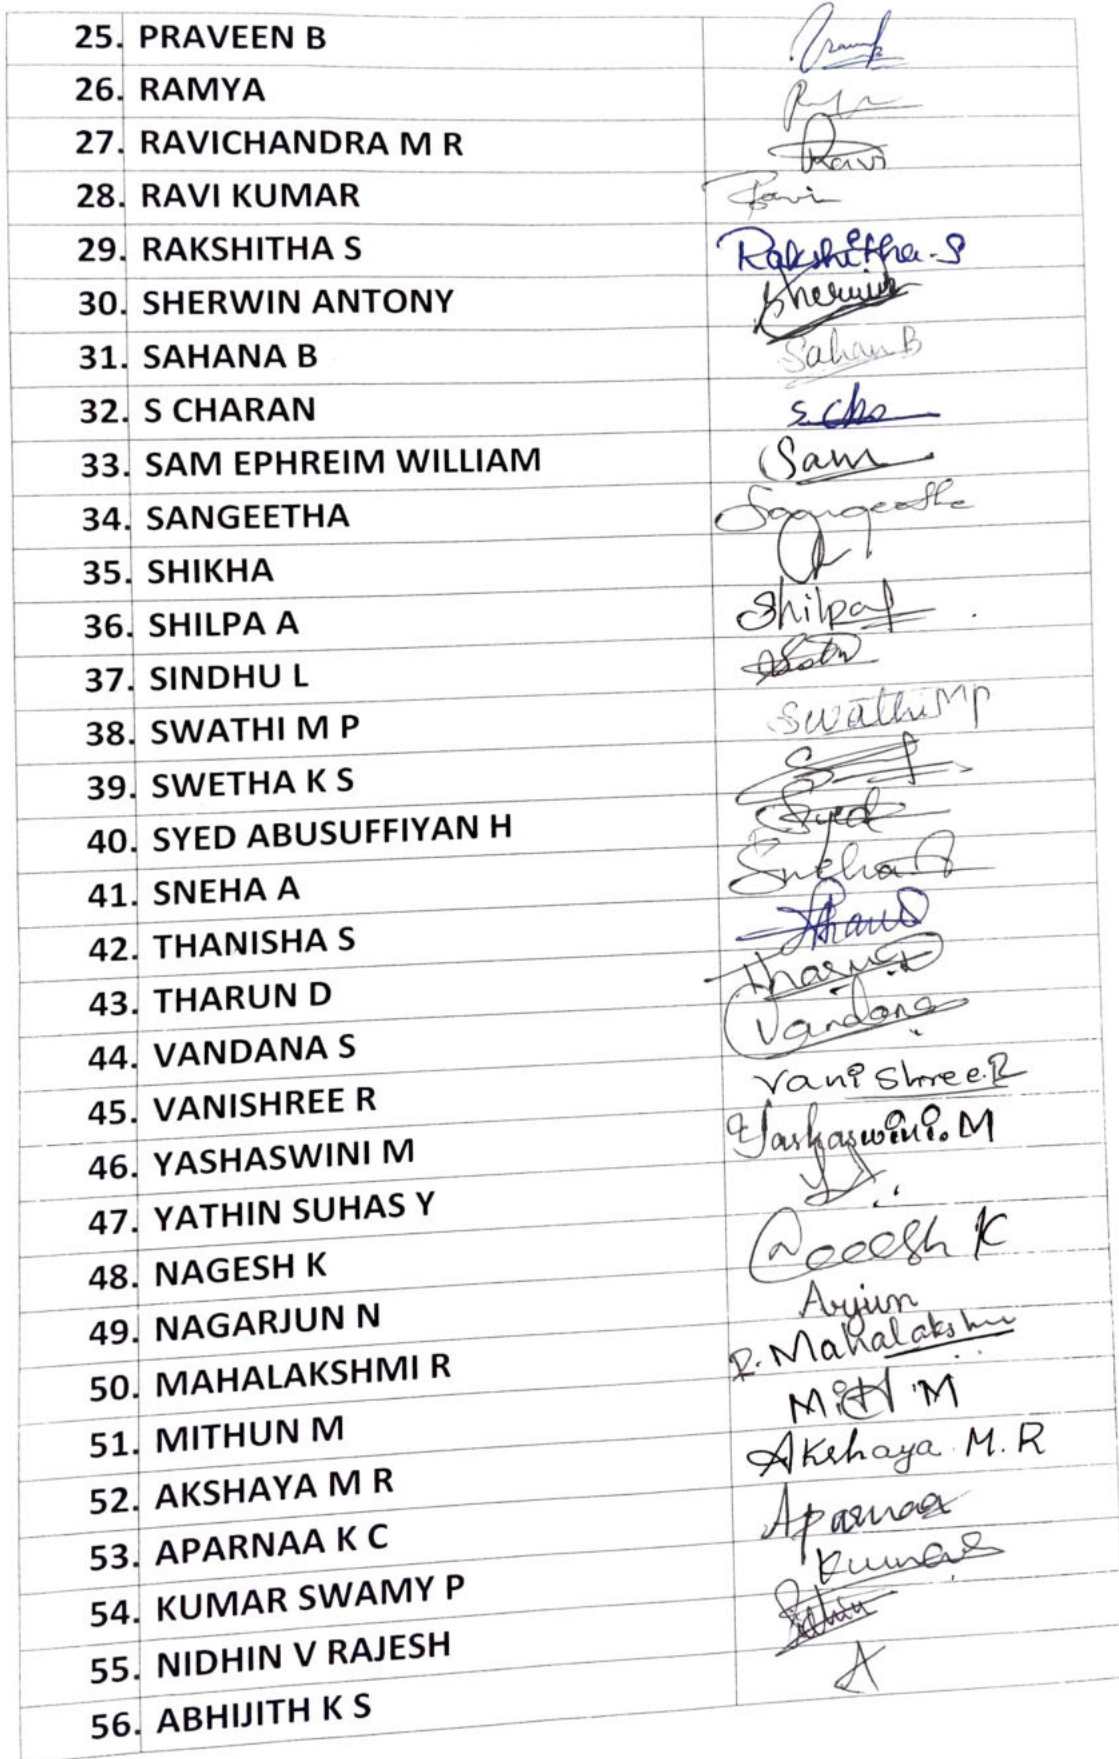 25. PRAVEEN B
26. RAMYA
27. RAVICHANDRA M R Ravi
28. RAVI KUMAR Ravi
29. RAKSHITHA S Rakshitha.S
30. SHERWIN ANTONY Sherwin
31. SAHANA B Sahan B
32. S CHARAN S.Cha
33. SAM EPHREIM WILLIAM Sam
34. SANGEETHA Sangeetha
35. SHIKHA
36. SHILPA A Shilpa
37. SINDHU L
38. SWATHI M P Swathi MP
39. SWETHA K S
40. SYED ABUSUFFIYAN H Syed
41. SNEHA A Sneha A
42. THANISHA S
43. THARUN D Tharun
44. VANDANA S Vandana
45. VANISHREE R Vani Shree.R
46. YASHASWINI M Yashaswini.M
47. YATHIN SUHAS Y
48. NAGESH K K
49. NAGARJUN N Arjun
50. MAHALAKSHMI R R. Mahalakshmi
51. MITHUN M Mith M
52. AKSHAYA M R Akshaya M.R
53. APARNAA K C Aparnaa
54. KUMAR SWAMY P Kumar
55. NIDHIN V RAJESH
56. ABHIJITH K S A